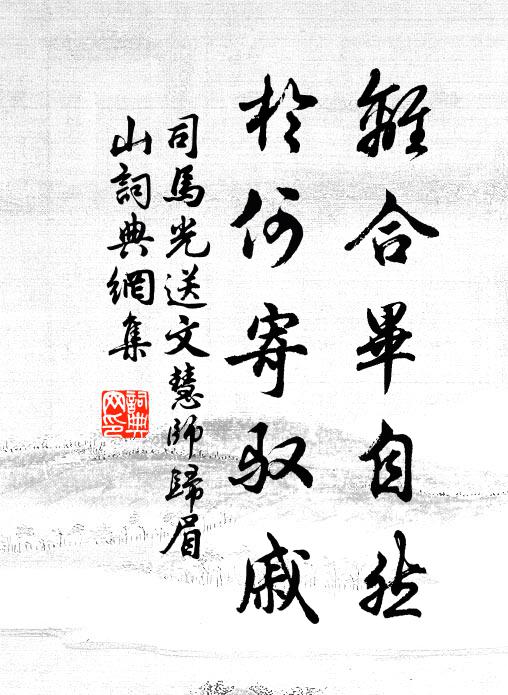 離合畢自然
於何寄馭戚
司馬光送文慧師歸眉
山詞典網集
詞典
网印